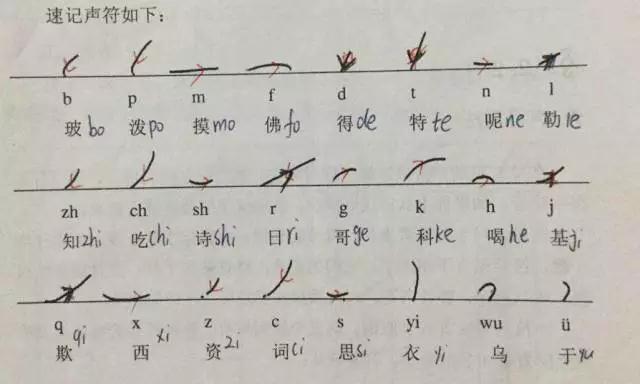 速记声符如下：
b p m f d t n l
玻bo 泼po 摸mo 佛fo 得de 特te 呢ne 勒le
zh ch sh r g k h j
知zhi 吃chi 诗shi 日ri 哥ge 科ke 喝he 基ji
q x z c s yi wu ü
欺qi 西xi 资zi 词ci 思si 衣yi 乌 于yu